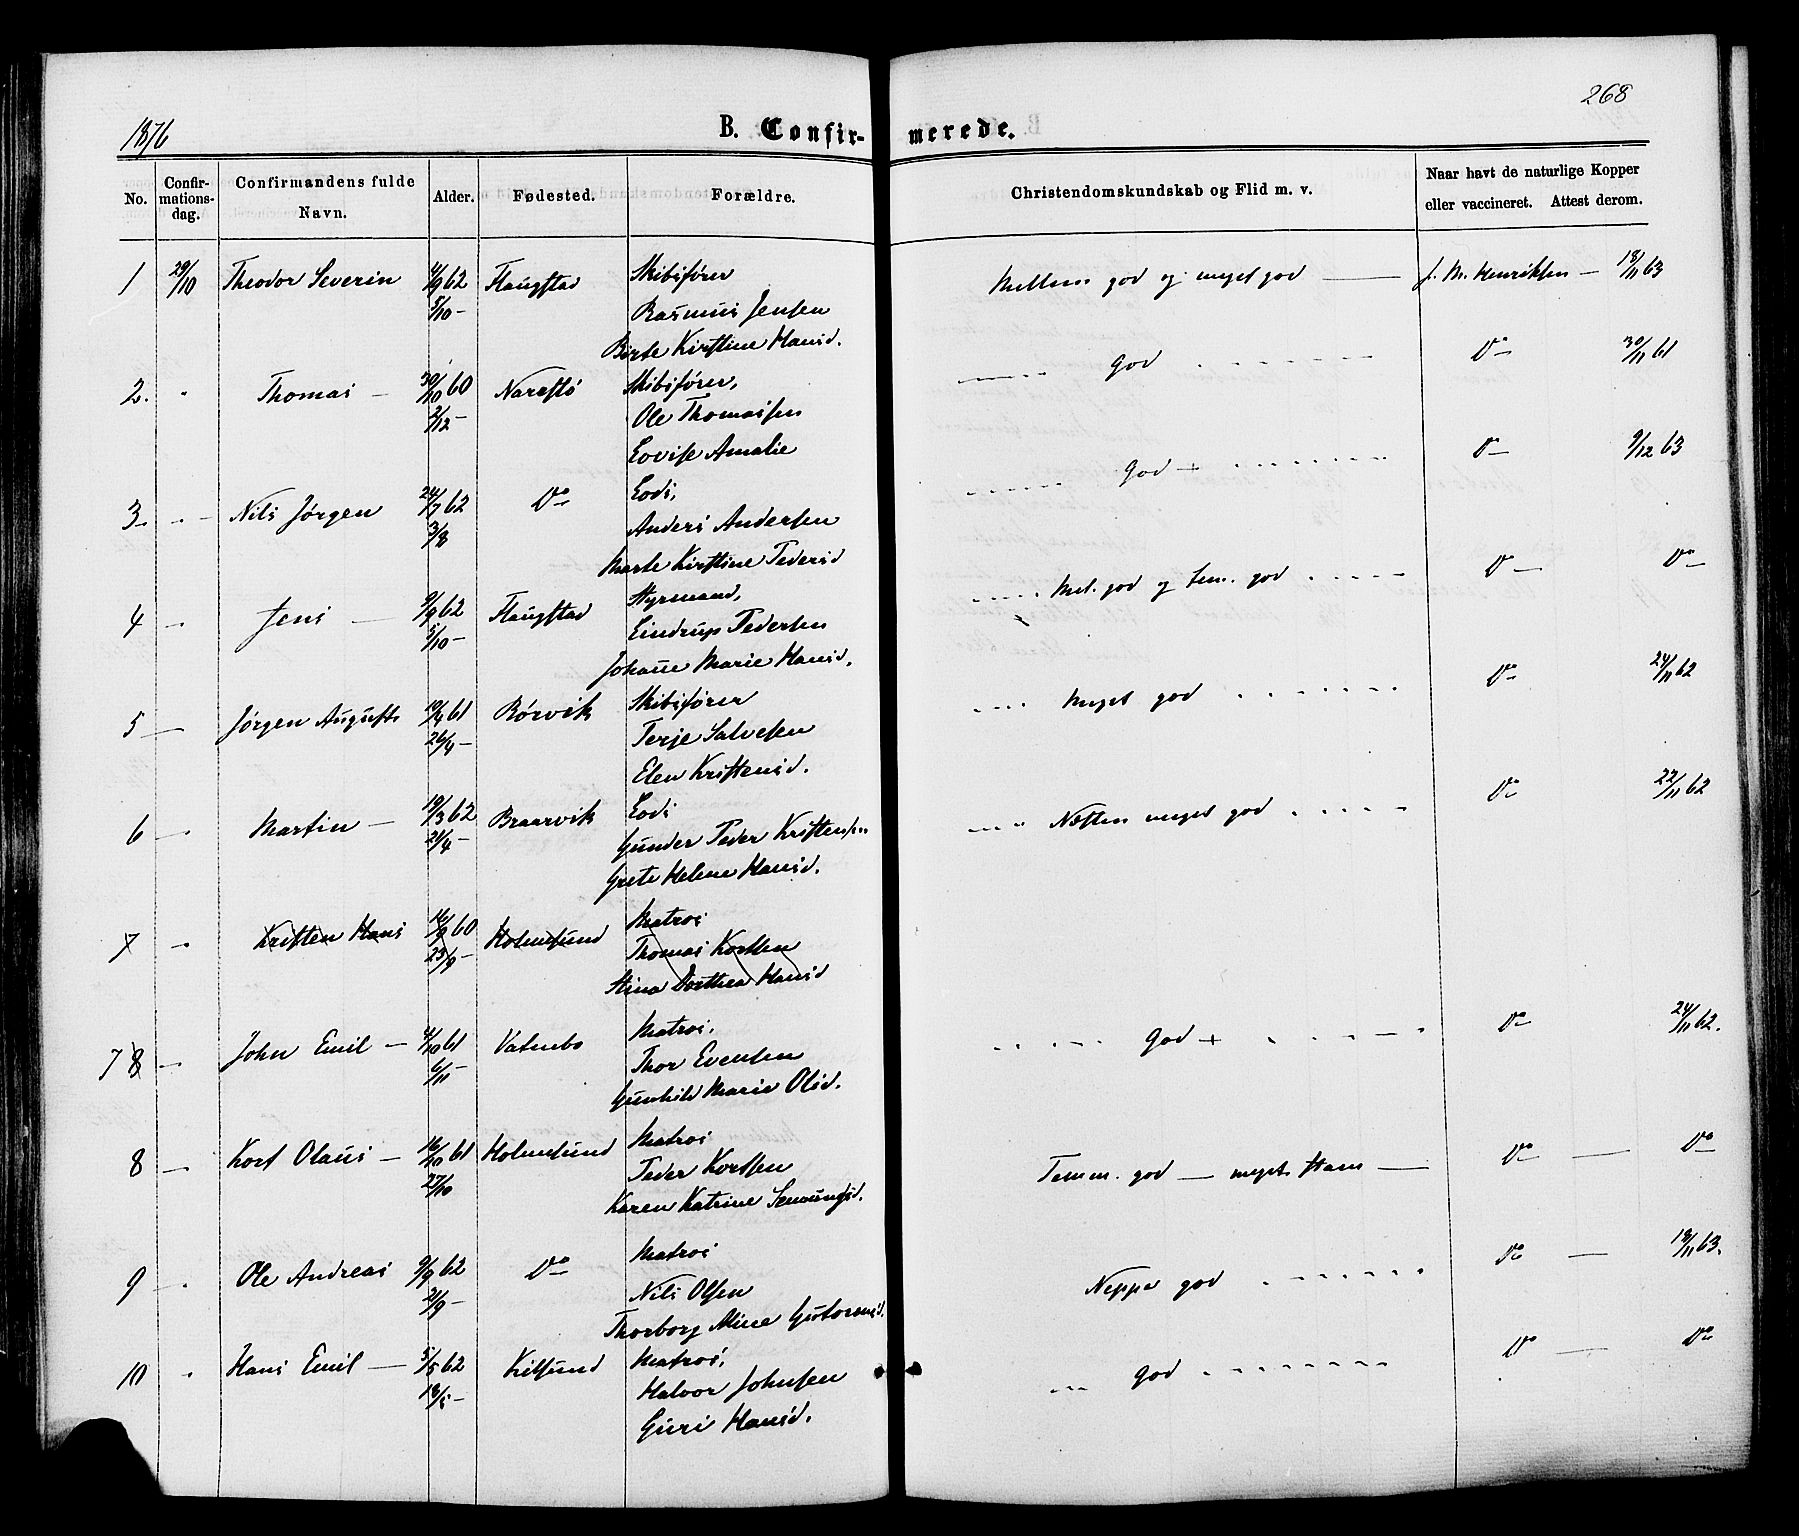 268
1876 B. Confirmerede.
No. Confirmationsdag. Confirmandens fulde Navn. Alder. Fødested. Forældre. Christendomskundskab og Flid m. v. Naar havt de naturlige Kopper eller vaccineret. Attest derom.
1 29/10 Theodor Severin 4/9 62 Flangstad Skibsfører Mellem god og meget god — J. M. Henriksen — 18/11 63
5/10 — Rasmus Jensen
Birte Kirstine Hansd.
2. " Thomas — 30/10 60 Narestø Skibsfører, God Do 30/11 61
2/12 — Ole Thomassen
Lovise Amalie
3 " Nils Jørgen 24/7 62 Do Lods, God + Do 9/12 63
3/8 Anders Andersen
Marte Kirstine Pedersd
4 " Jens — 9/9 62 Flangstad Styrmand, Mel. god og tem. god Do Do
5/10 — Lindrup Pedersen
Johanne Marie Hansd.
5 — Jørgen August 19/4 61 Børvik Skibsfører Meget god Do 24/11 62
26/4 — Terje Salvesen
Elen Kristensd.
6 — Martin — 19/3 62 Braarvik Lods Næsten meget god Do 22/11 62
21/4 — Gunder Peder Kristensen
Grete Helene Hansd.
7 " Kristen Hans 16/9 60 Holmsund Matros
23/9 — Thomas Kortsen
Stina Dorthea Hansd
7 8 — John Emil — 4/10 61 Vatnebo Matros, God + Do 24/11 62.
6/11 — Thor Evensen
Gunhild Marie Olsd.
8 — Kort Olaus — 16/10 61 Holmsund Matros Temm. god — meget stam — Do — Do
27/10 Peder Kortsen
Karen Katrine
9 " Ole Andreas 9/9 62 Do Matros Neppe god Do — 18/11 63.
21/9 — Nils Olsen
Thorborg Mine Guttormsd.
10 " Hans Emil — 5/5 62 Kilsund Matros, God Do — Do
18/5 — Halvor Johnsen
Guri Hansd.